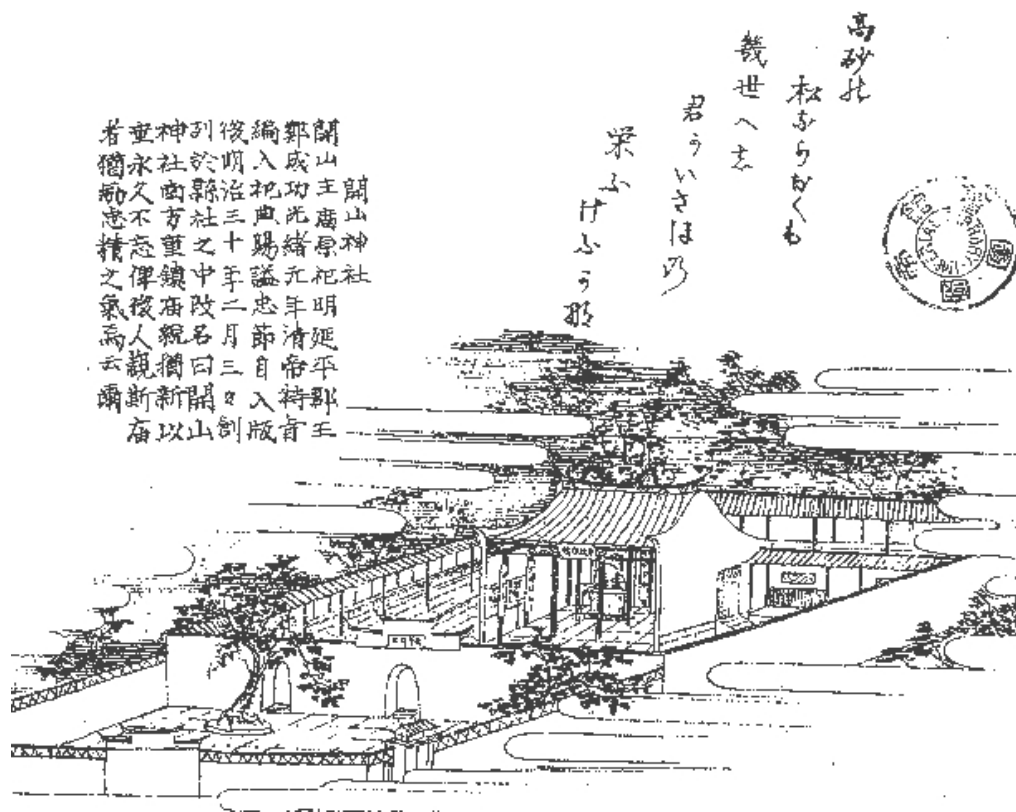 高砂の
松ならなくも
幾世へし
君かいさほの
栄ふけふか那
開山神社
開山主庿原祀明延平郡王
鄭成功光緒元年清帝特旨
編入祀典賜謚忠節自入版
後明治三十年二月三日創
列於縣社之中改名曰開山
神社南方重鎮庙貌猶新以
垂永久不忘俾後人觀斯庙
者猶勵忠精之氣焉云爾